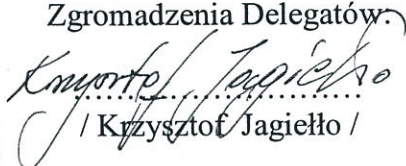 Zgromadzenia Delegatów:
Krzysztof Jagiełło
/ Krzysztof Jagiełło /